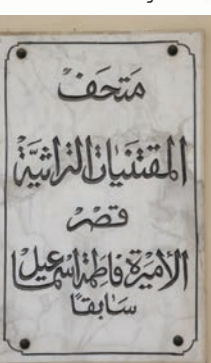 متحف
المقتنيات التراثية
قصر
الأميرة فاطمة اسماعيل
سابقًا